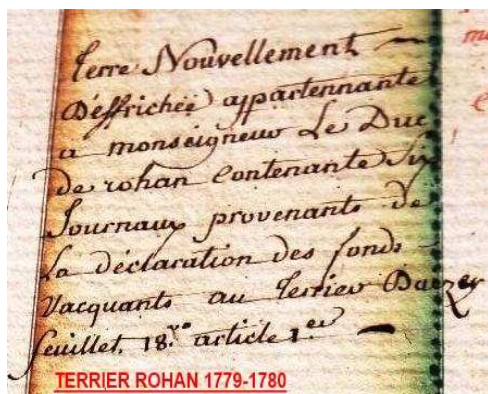 Terre Nouvellement —
Déffrichée appartennante
a monseigneur Le Duc
de rohan Contenante Six
Journaux provenants de
La déclaration des fonds
Vacquants au Terrier
feuillet. 18.vo article 1.er —
TERRIER ROHAN 1779-1780